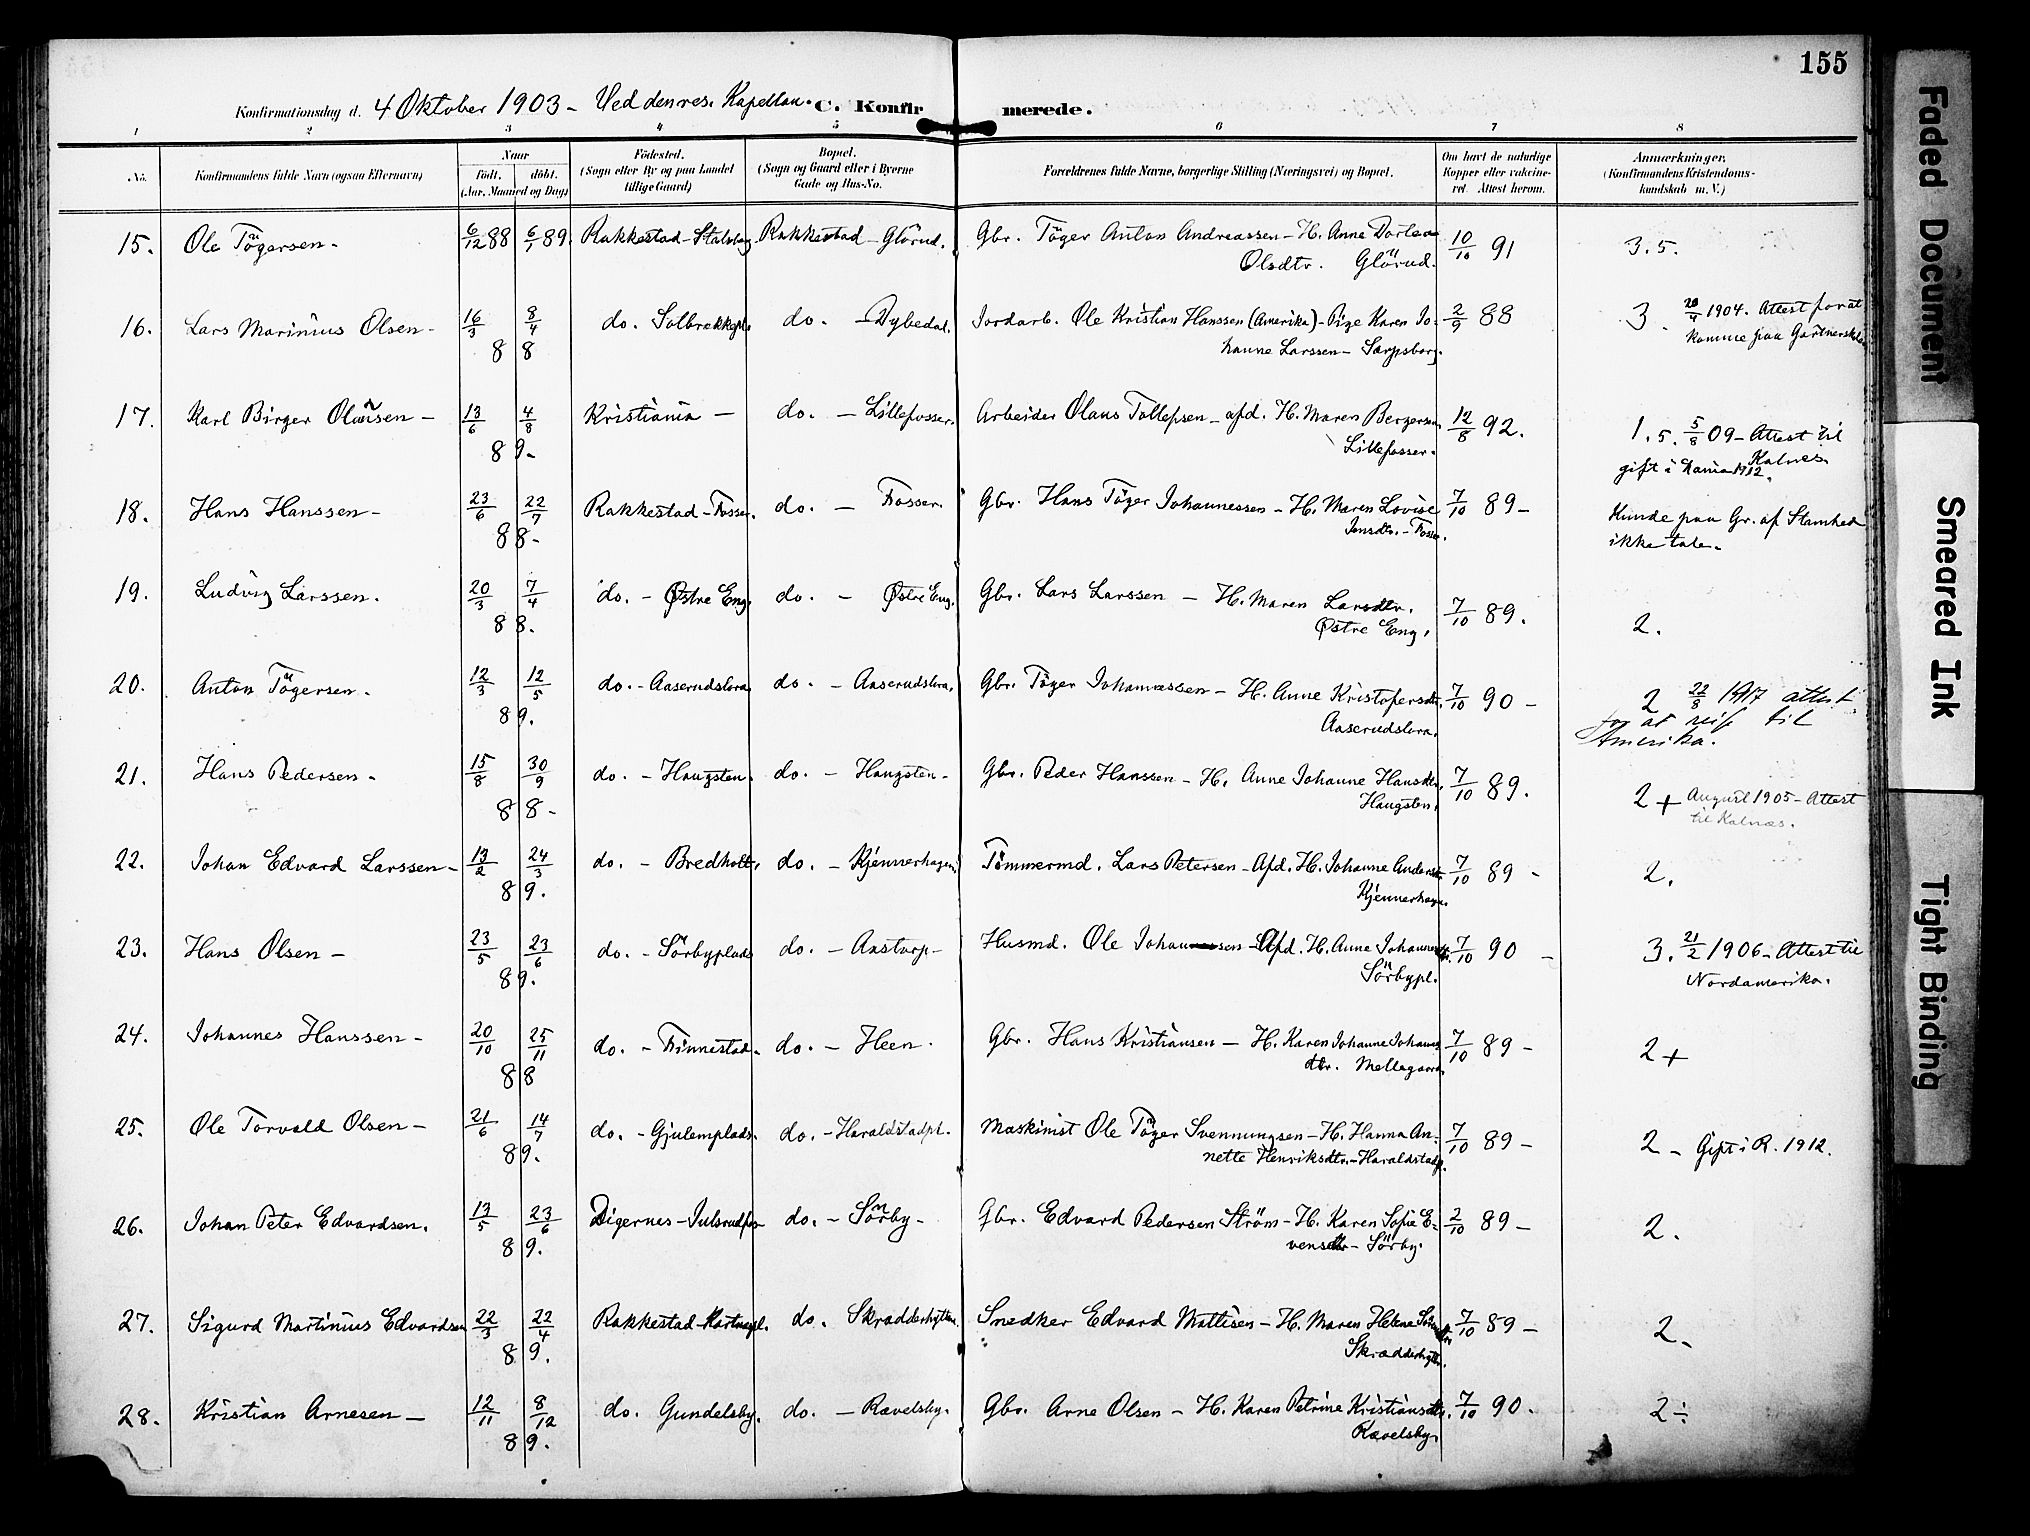 155
Konfirmationsdag d. 4 Oktober 1903 - Ved den res. Kapellan. C. Konfirmerede.
1 2 3 4 5 6 7 8
No. Konfirmandens fulde Navn (ogsaa Efternavn) Naar födt. döbt. (Aar, Maaned og Dag) Födested. (Sogn eller By og paa Landet tillige Gaard) Bopæl. (Sogn og Gaard eller i Byerne Gade og Hus-No. Forældrenes fulde Navne, borgerlige Stilling (Næringsvei) og Bopæl. Om havt de naturlige Kopper eller vaccineret. Attest herom. Anmærkninger. (Konfirmandens Kristendomskundskab m. V.)
15. Ole Tögersen - 6/12 88 6/1 89. Rakkestad - Rakkestad - Glörud. Gbr. Töger Anton Andreassen - H. Anne Dortea 10/10 91 3.5.
Olsdtr. Glörud.
16. Lars Marinius Olsen - 16/3 8/4 do. Solbrækkepl. do. - Dybedal. Jordarb. Ole Kristian Hanssen (Amerika) - Pige Karen Jo- 2/9 88 3. 1904. Attest for at
88 hanne Larssen - Sarpsborg. komme paa Gartnerskolen
17. Karl Birger Olausen - 13/6 4/8 Kristiania - do. - Lillefosser. Arbeider Olaus Tollefsen - afd. H. Maren Bergersen 12/8 92. 1.5. 5/8 09 - Attest til
89. Lillefosser. Kalnes.
gift i 1912.
18. Hans Hanssen - 23/6 22/7 Rakkestad - Fosser. do. - Fosser. Gbr. Hans Töger Johannessen - H. Maren Lovise 7/10 89 - Kunde paa Gr. af Stamhed
88. Jensdtr. - Fosser. ikke tale.
19. Ludvig Larssen. 20/3 7/4 do. - Østre Eng. do. - Østre Eng. Gbr. Lars Larssen - H. Maren Larsdtr. 7/10 89. 2.
88. Østre Eng.
20. Anton Tögersen. 12/3 12/5 do. - Aaserudslora do. - Aaserudslora. Gbr. Töger Johannessen - H. Anne Kristofersdtr. 7/10 90 - 2 22/8 1917 attest
89. Aaserudslora. for at reise til
Amerika.
21. Hans Pedersen - 15/8 30/9 do. - Haugsten. do. - Haugsten - Gbr. Peder Hanssen - H. Anne Johanne Hansdtr. 7/10 89. 2+ August 1905 - Attest
88 - Haugsten. til Kalnæs.
22. Johan Edvard Larssen - 13/2 24/3 do. - Bredholt. do. - Kjennerhagen. Tömmermd. Lars Petersen - Afd. H. Johanne Andersdtr 7/10 89 - 2.
89. Kjennerhagen.
23. Hans Olsen - 23/5 23/6 do. - Sörbyplads do. - Aastorp - Husmd. Ole - Afd. H. Anne Johannesdtr. 7/10 90 - 3. 21/2 1906 - Attest til
89. Sörbypl. Nordamerika.
24. Johannes Hanssen - 20/10 25/11 do. - Finnestad. do. - Heen. Gbr. Hans Kristiansen - H. Karen Johanne Johannes 7/10 89 - 2+
88 dtr. Mellegaard.
25. Ole Torvald Olsen - 21/6 14/7 do. - Gjulemplads. do. - Haraldstadpl. Maskinist Ole Töger Svenningsen - H. Hanna An- 7/10 89 - 2 - Gift i R. 1912.
89. nette Henriksdtr. - Haraldstadpl.
26. Johan Peter Edvardsen. 13/5 23/6 Digernes - do. - Sörby - Gbr. Edvard Pedersen Ström - H. Karen Sofie E- 2/10 89 - 2.
89. vensdtr - Sörby.
27. Sigurd Martinius Edvardsen 22/3 22/4 Rakkestad do. Skrædderhytten. Snedker Edvard Mattisen - H. Maren Helene 7/10 89 - 2.
89. Skrædderhytten.
28. Kristian Arnesen - 12/11 8/12 do. Gundelsby. do. - Rævelsby. Gbr. Arne Olsen - H. Karen Petrine Kristiansdtr. 7/10 90. 2÷
89. Rævelsby.
Faded Document
Smeared Ink
Tight Binding